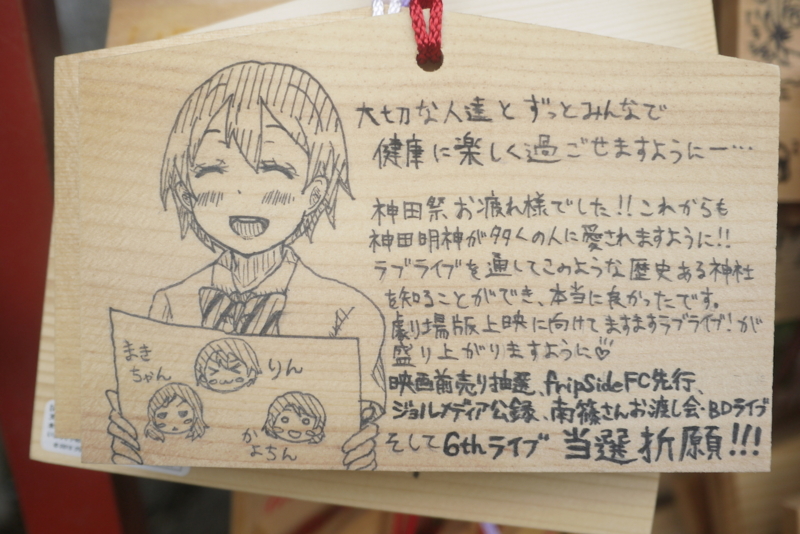 大切な人達とずっとみんなで
健康に楽しく過ごせますようにー…
神田祭お疲れ様でした!!これからも
神田明神が多くの人に愛されますように!!
ラブライブを通してこのような歴史ある神社
を知ることができ、本当に良かったです。
劇場版上映に向けてますますラブライブ!が
盛り上がりますように♡
映画前売り抽選、fripSideFC先行、
ジョルメディア公録、南篠さんお渡し会・BDライブ
そして6thライブ 当選折願!!!
まき
ちゃん
りん
かよちん